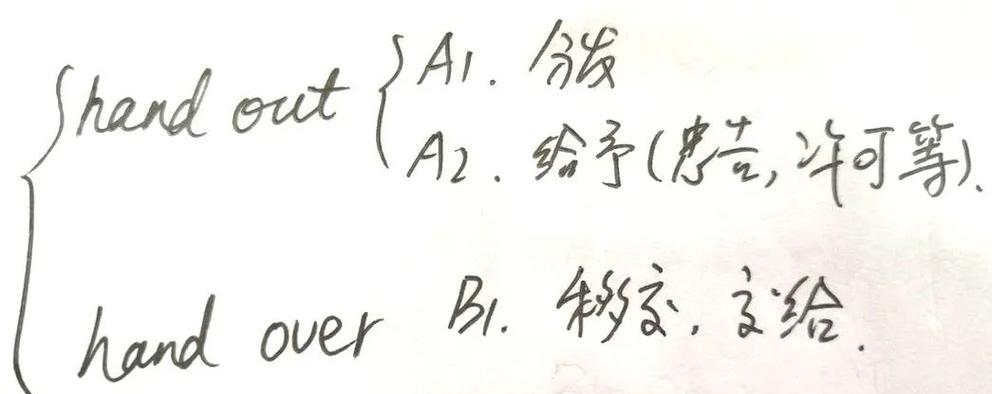 hand out
A1. 分发
A2. 给予(忠告,许可等).
hand over B1. 移交, 交给.